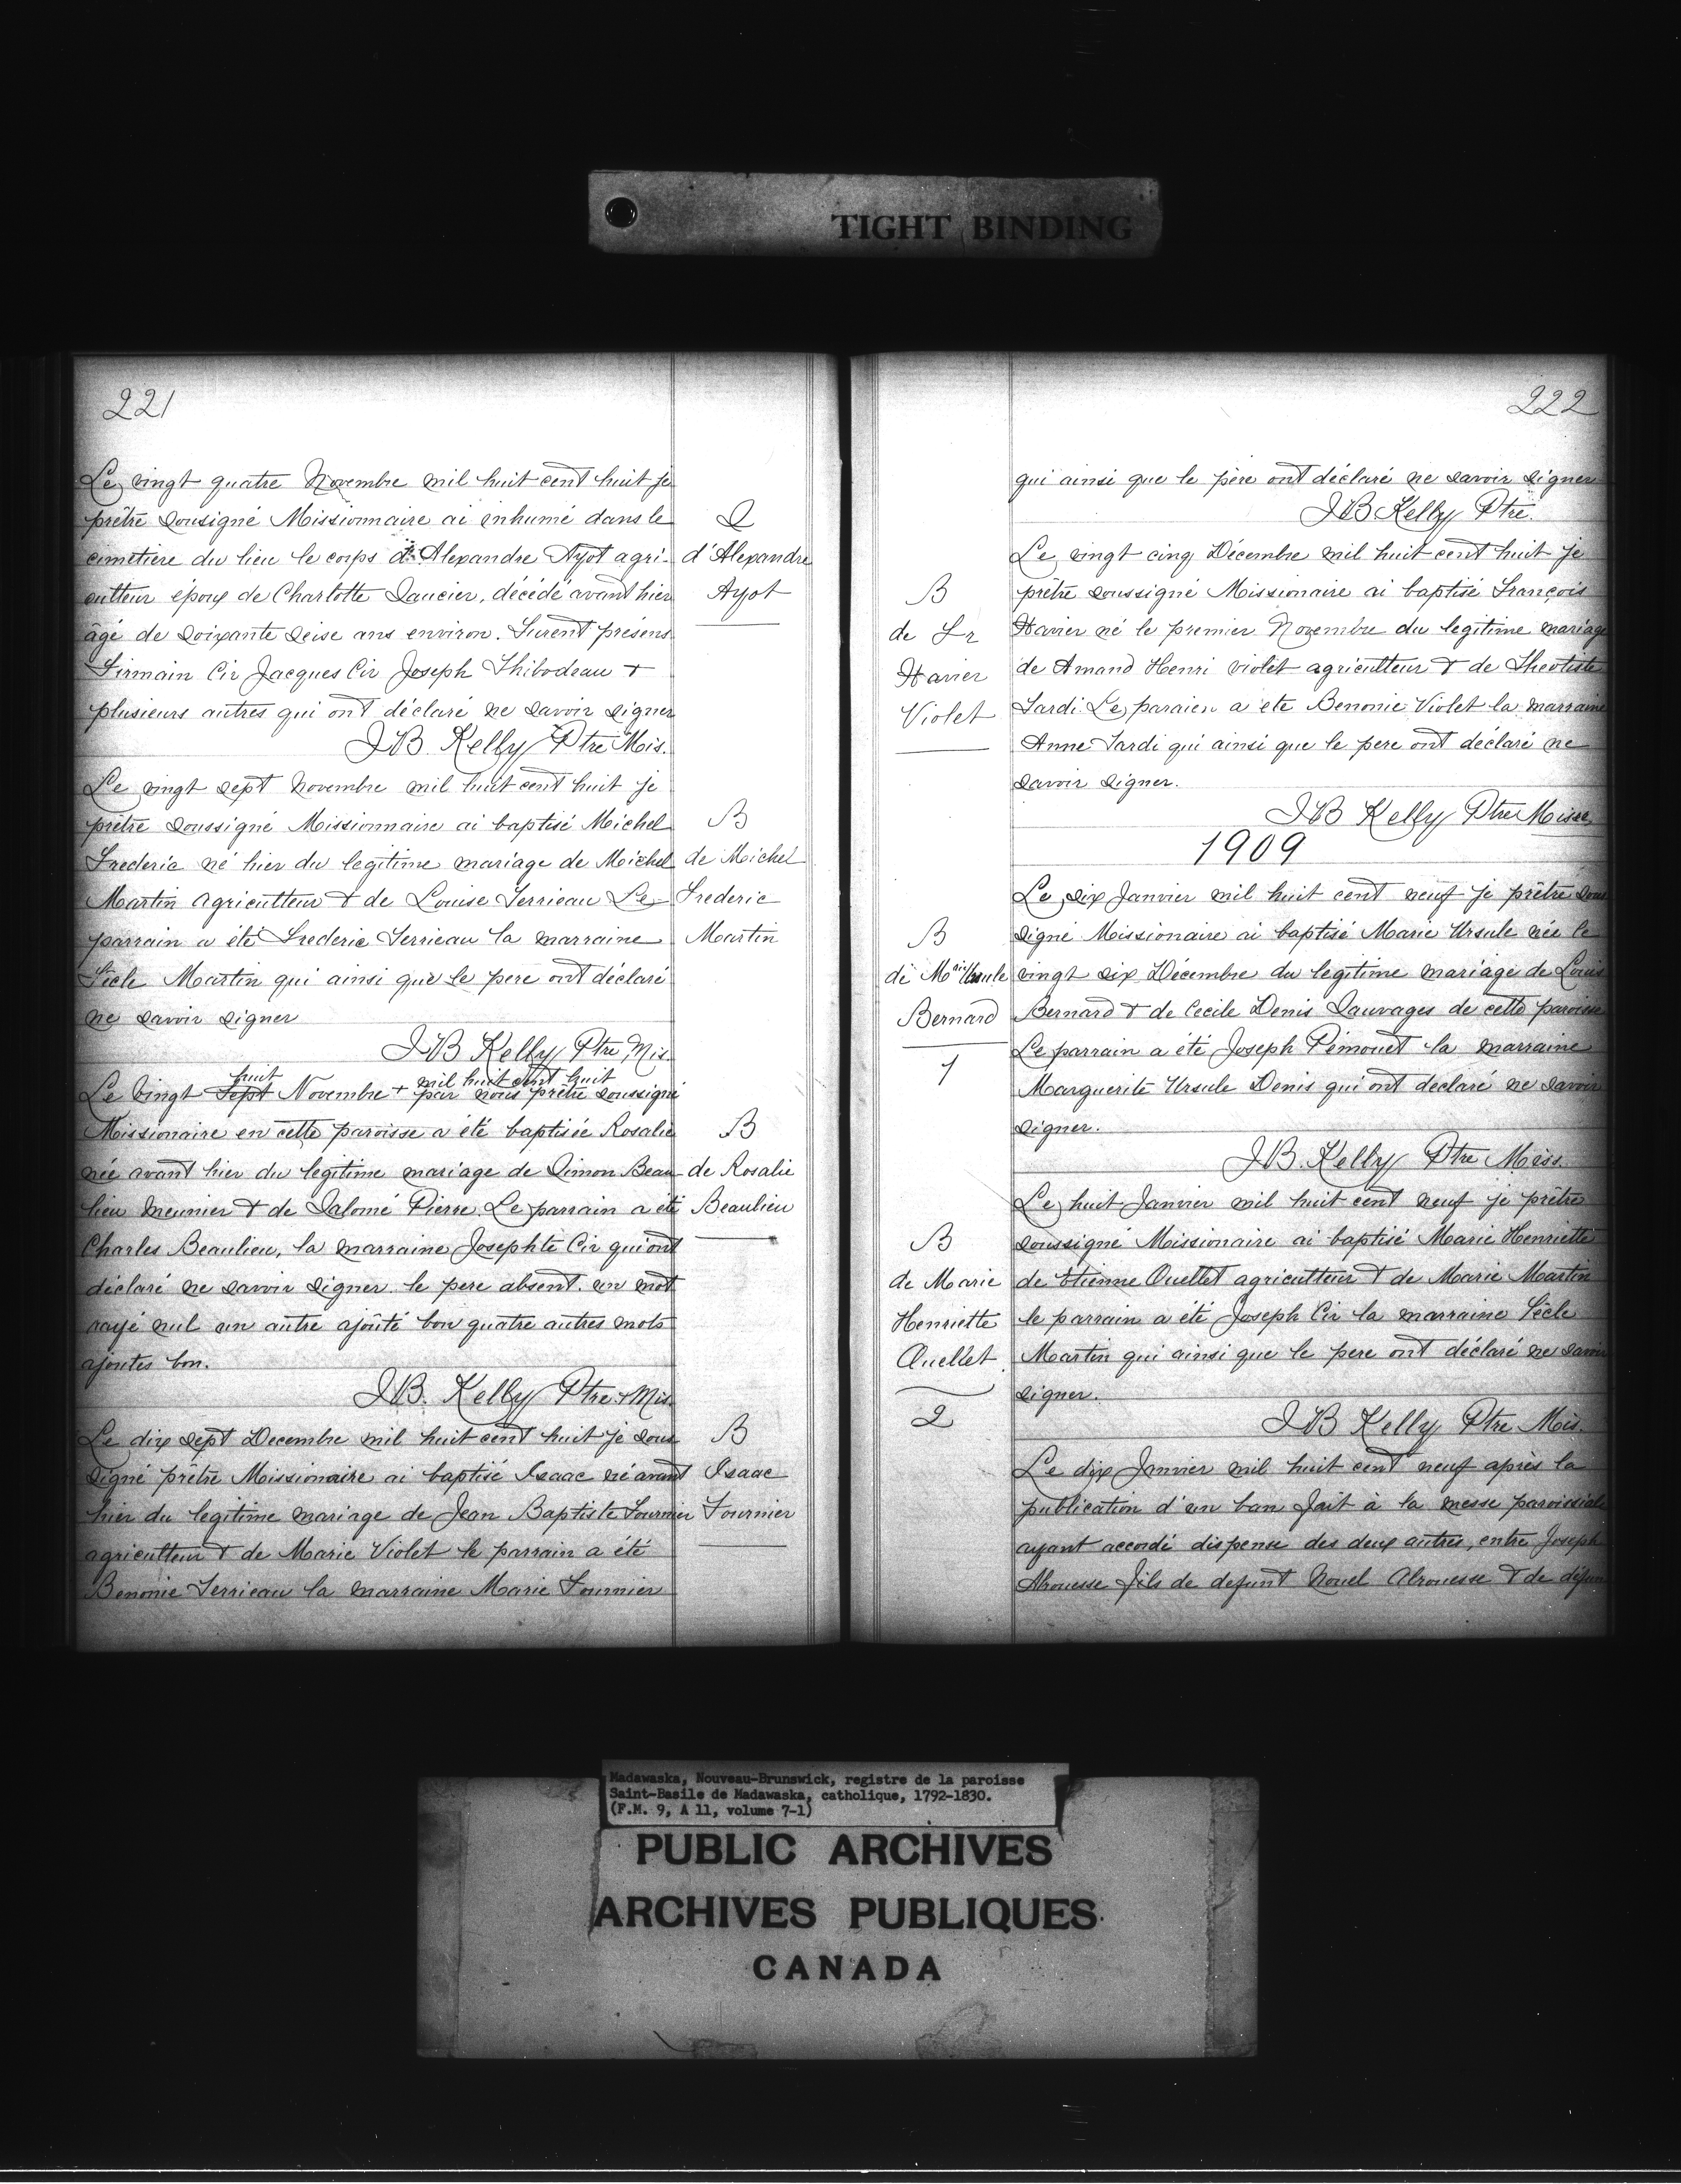 TIGHT BINDING
221
Le vingt quatre Novembre mil huit cent huit je
prêtre sousigné Missionnaire ai inhumé dans le
cimetiere du lieu le corps d'Alexandre Ayot agri-
culteur époux de Charlotte Saucier, décédé avant hier
âgé de soixante seise ans environ. Furent présens
Firmain Cir Jacques Cir Joseph Thibodeau +
plusieurs autres qui ont déclaré ne savoir signer
J.B. Kelly Ptre Mis.
S
d'Alexandre
Ayot
Le vingt sept Novembre mil huit cent huit je
prêtre soussigné Missionnaire ai baptisé Michel
Frederic né hier du legitime mariage de Michel
Martin agriculteur & de Louise Terrieau Le
parrain a été Frederic Terrieau la marraine
Sècle Martin qui ainsi que le pere ont déclaré
ne savoir signer
J.B Kelly Ptre Mis
B
de Michel
Frederic
Martin
huit mil huit cent huit
Le Vingt Sept Novembre + par nous prêtre soussigné
Missionaire en cette paroisse a été baptisée Rosalie
née avant hier du legitime mariage de Simon Beau-
lieu meunier & de Salomé Pierre. Le parrain a été
Charles Beaulieu, la marraine Josephte Cir qui ont
déclaré ne savoir signer le pere absent. un mot
rayé nul un autre ajouté bon quatre autres mots
ajoutes bon.
J.B. Kelly Ptre + Mis
B
de Rosalie
Beaulieu
Le dix sept Decembre mil huit cent huit je sous
signé prêtre Missionaire ai baptisé Isaac né avant
hier du legitime mariage de Jean Baptiste Fournier
agriculteur & de Marie Violet le parrain a été
Benonie Terrieau la marraine Marie Fournier
B
Isaac
Fournier
222
qui ainsi que le père ont déclaré ne savoir signer
J B Kelly Ptre.
Le vingt cinq Décembre mil huit cent huit je
prêtre soussigné Missionaire ai baptisé François
Xavier né le premier Novembre du legitime mariage
de Amand Henri Violet agriculteur & de Theotiste
Tardi. Le paraien a ete Benonie Violet la marraine
Anne Tardi qui ainsi que le pere ont déclaré ne
savoir signer.
J B Kelly Ptre Misse
B
de Fr
Xavier
Violet
1909
Le six Janvier mil huit cent neuf je prêtre sous
signé Missionaire ai baptisé Marie Ursule née le
vingt six Décembre du legitime mariage de Louis
Bernard & de Cecile Denis Sauvages de cette paroisse
Le parrain a été Joseph Pémouet la marraine
Marguerite Ursule Denis qui ont declaré ne savoir
signer.
J.B. Kelly Ptre Miss.
B
de Marie Ursule
Bernard
1
Le huit Janvier mil huit cent neuf je prêtre
soussigné Missionaire ai baptisé Marie Henriette
de Etienne Ouellet agriculteur & de Marie Martin
le parrain a été Joseph Cir la marraine Sècle
Martin qui ainsi que le pere ont déclaré ne savoir
signer.
J B Kelly Ptre Mis.
B
de Marie
Henriette
Ouellet.
2
Le dix Janvier mil huit cent neuf après la
publication d'un ban fait à la messe paroissiale
ayant accordé dispense des deux autres, entre Joseph
Alrouesse fils de defunt Nouel Alrouesse & de défun
Madawaska, Nouveau-Brunswick, registre de la paroisse
Saint-Basile de Madawaska, catholique, 1792-1830.
(F.M. 9, A 11, volume 7-1)
PUBLIC ARCHIVES
ARCHIVES PUBLIQUES
CANADA